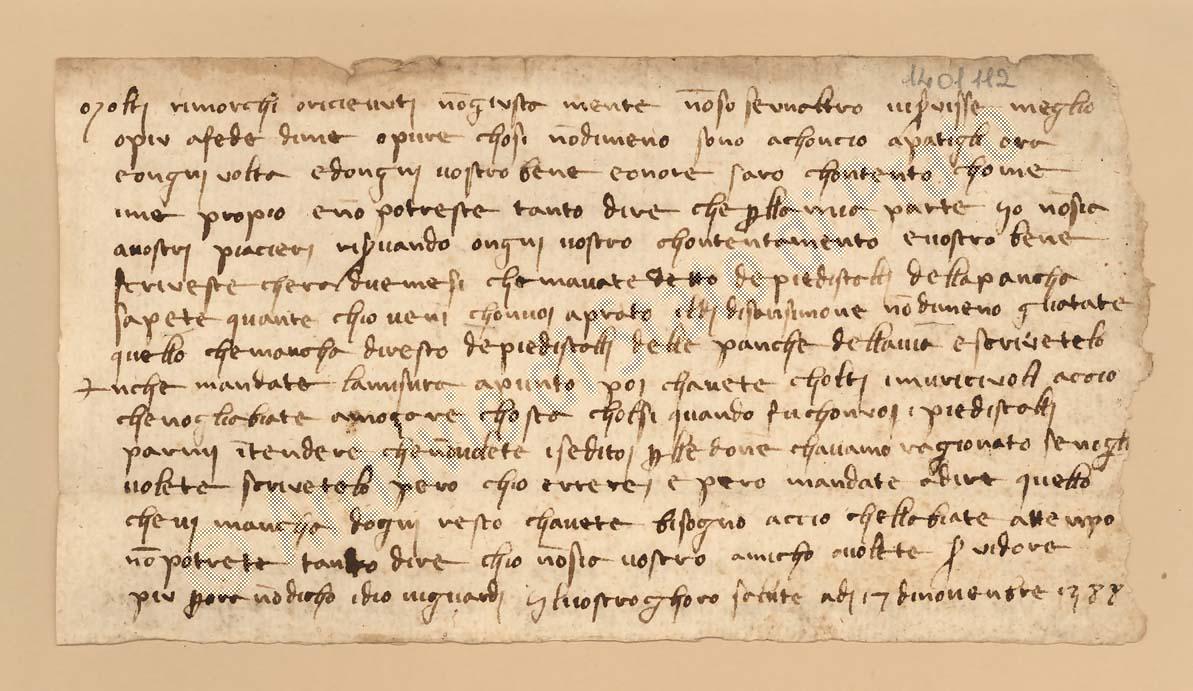 1401112
molti rimorchi oricievuti nōgiusta mente nōso senaltro visservisse meglio
opiu afede dime opure chosi nōdimeno sono achoncio apatigli ora
eongni volta edongni vostro bene eonore saro chontento chome
me propio enō potreste tanto dire che perlla mia parte io nōsia
avostri piacieri riservando ongni vostro chontentamento evostro bene
scriveste chera duemesi che mavate detto de piedistalli dellapancha
sapete quante chio veni chonvoi aprato nōdimeno guatate
quello chemancha diresto de piedistalli delle panche escrivetelo
anche mandate lamisura apunto poi chavete cholti accio
chenogliabiate chosta quando fuchonvoi i piedistalli
parmi īntendere perlle done chavamo ragionato senogli
volete scrivetelo pero chio errerei e pero mandate adire quello
chevi mancha dogni resto chavete bisogno accio chellabiate attempo
nō potrete tanto dire chio nōsia vostro amicho avolete
piu perora nōdicho idio viguardi ilvostro ghoro salute adi 17 dinovenbre 1388